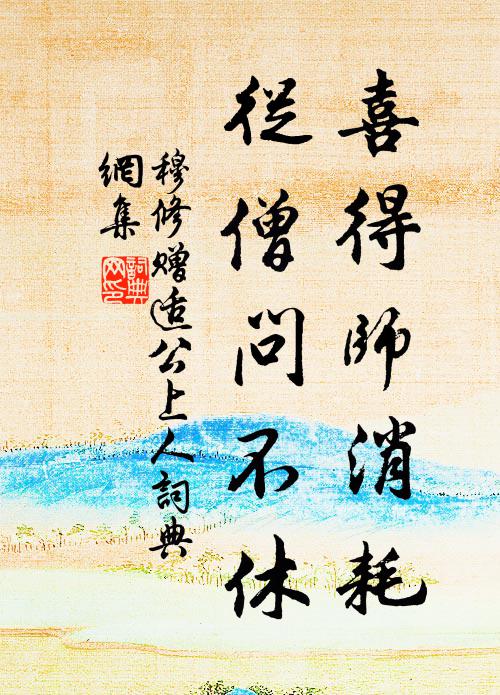 喜得師消耗
從僧問不休
穆修贈适公上人詞典
網集
詞典
网印